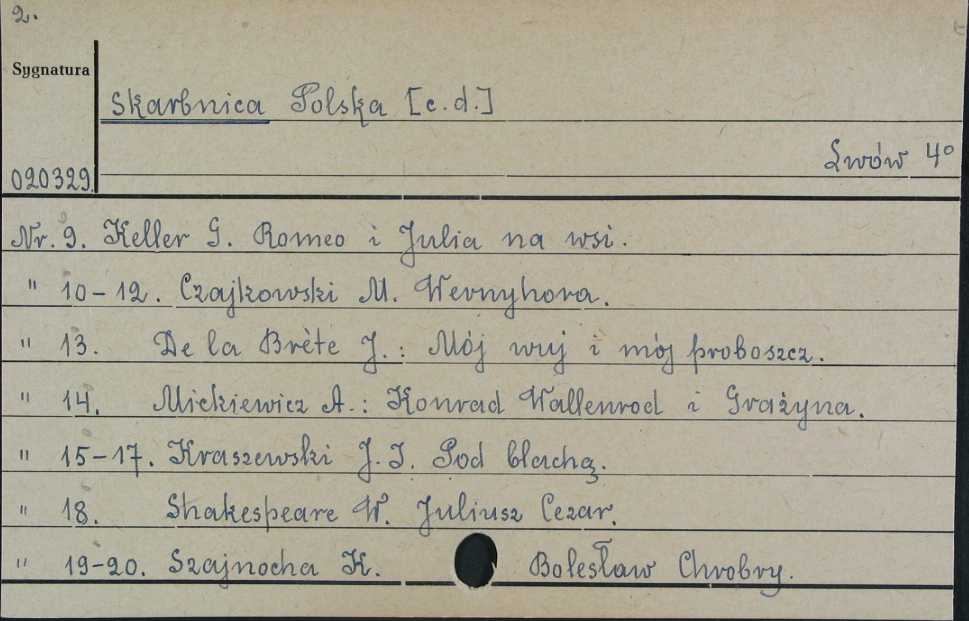 2.
Sygnatura
Skarbnica Polska [c.d.]
Lwów 4°
020329.
Nr. 9. Keller G. Romeo i Julia na wsi.
" 10-12. Czajkowski M. Wernyhora.
" 13. De la Brète J.: Mój wuj i mój proboszcz.
" 14. Mickiewicz A.: Konrad Wallenrod i Grażyna.
" 15-17. Kraszewski J.I. Pod blachą.
" 18. Shakespeare W. Juliusz Cezar.
" 19-20. Szajnocha K. Bolesław Chrobry.